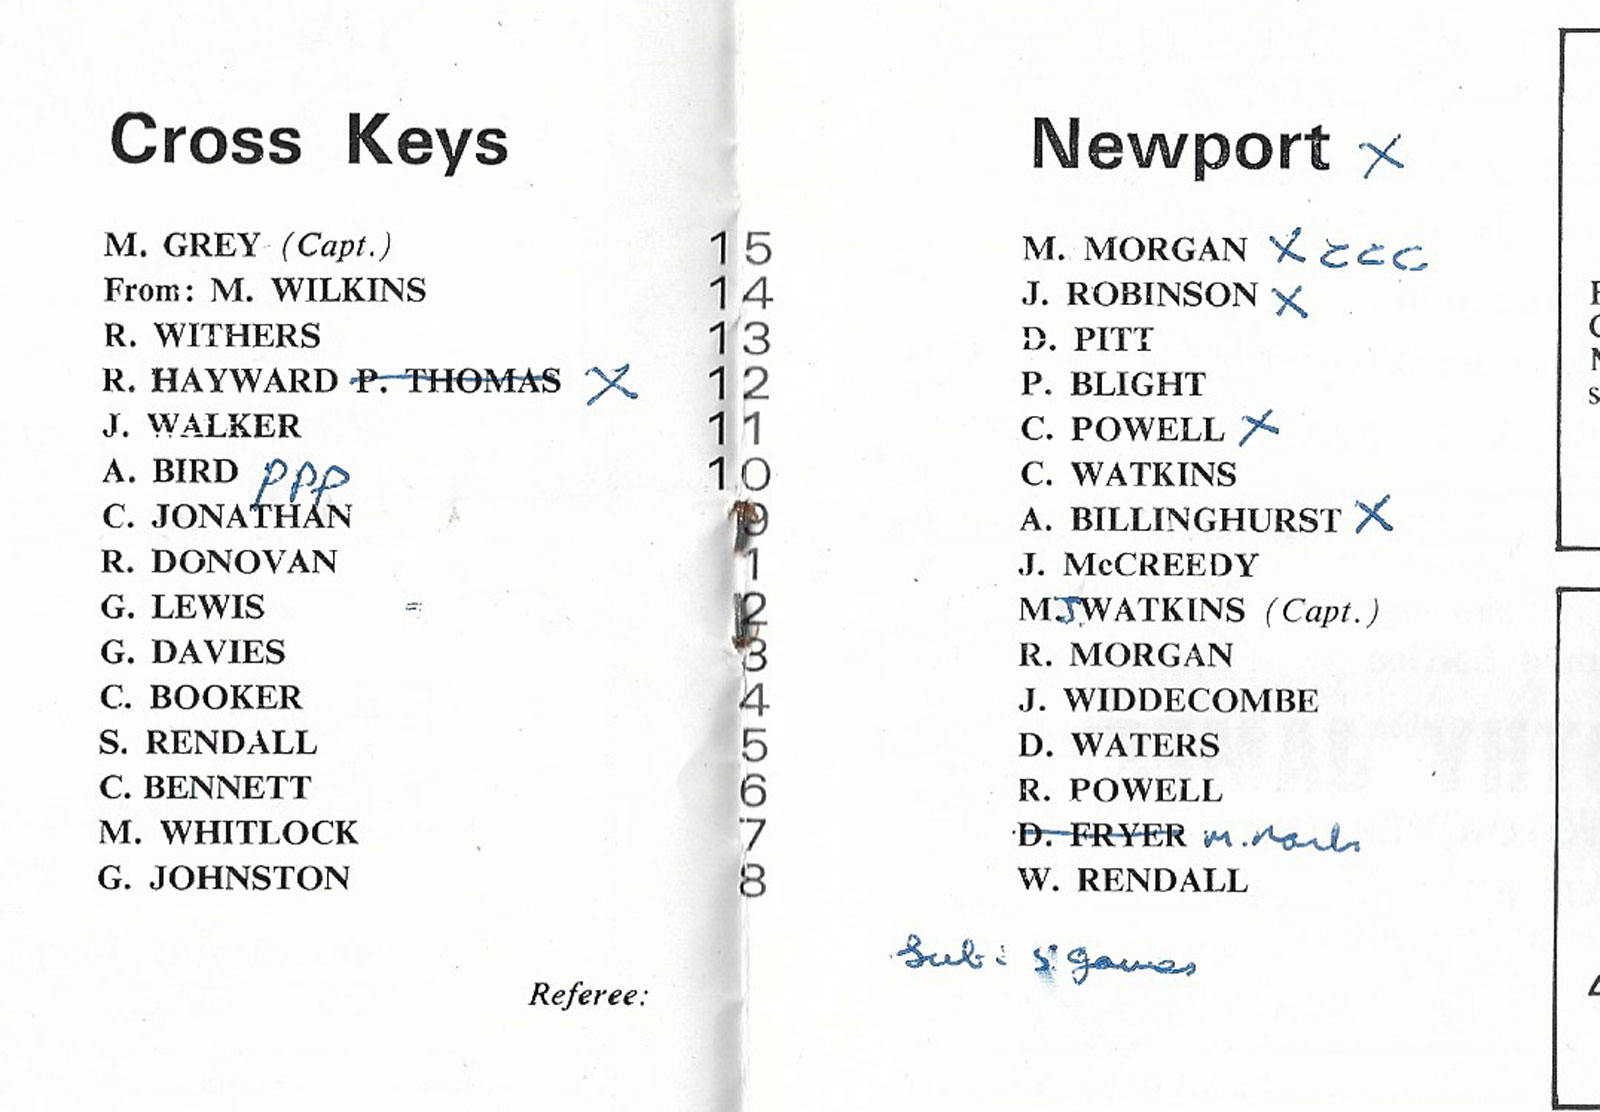 Cross Keys
M. GREY (Capt.) 15
From: M. WILKINS 14
R. WITHERS 13
R. HAYWARD P. THOMAS X 12
J. WALKER 11
A. BIRD PPP 10
C. JONATHAN 9
R. DONOVAN 1
G. LEWIS = 2
G. DAVIES 3
C. BOOKER 4
S. RENDALL 5
C. BENNETT 6
M. WHITLOCK 7
G. JOHNSTON 8
Referee:
Newport X
M. MORGAN X CCC
J. ROBINSON X
D. PITT
P. BLIGHT
C. POWELL X
C. WATKINS
A. BILLINGHURST X
J. McCREEDY
M.J. WATKINS (Capt.)
R. MORGAN
J. WIDDECOMBE
D. WATERS
R. POWELL
D. FRYER M.
W. RENDALL
Sub: